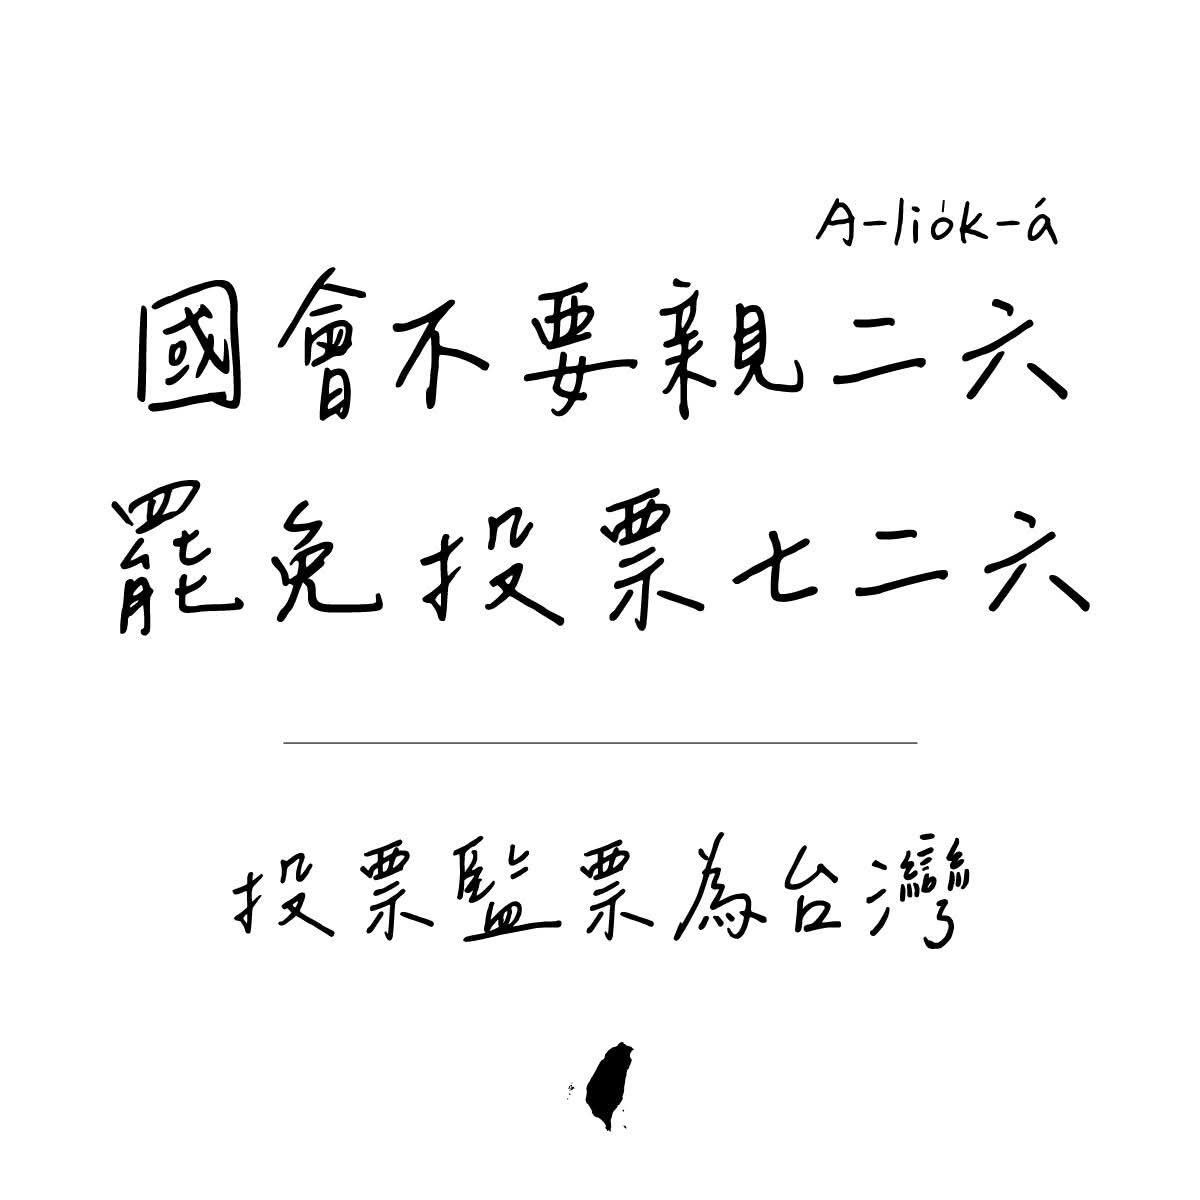 A-lio̍k-á
國會不要親二六
罷免投票七二六
投票監票為台灣